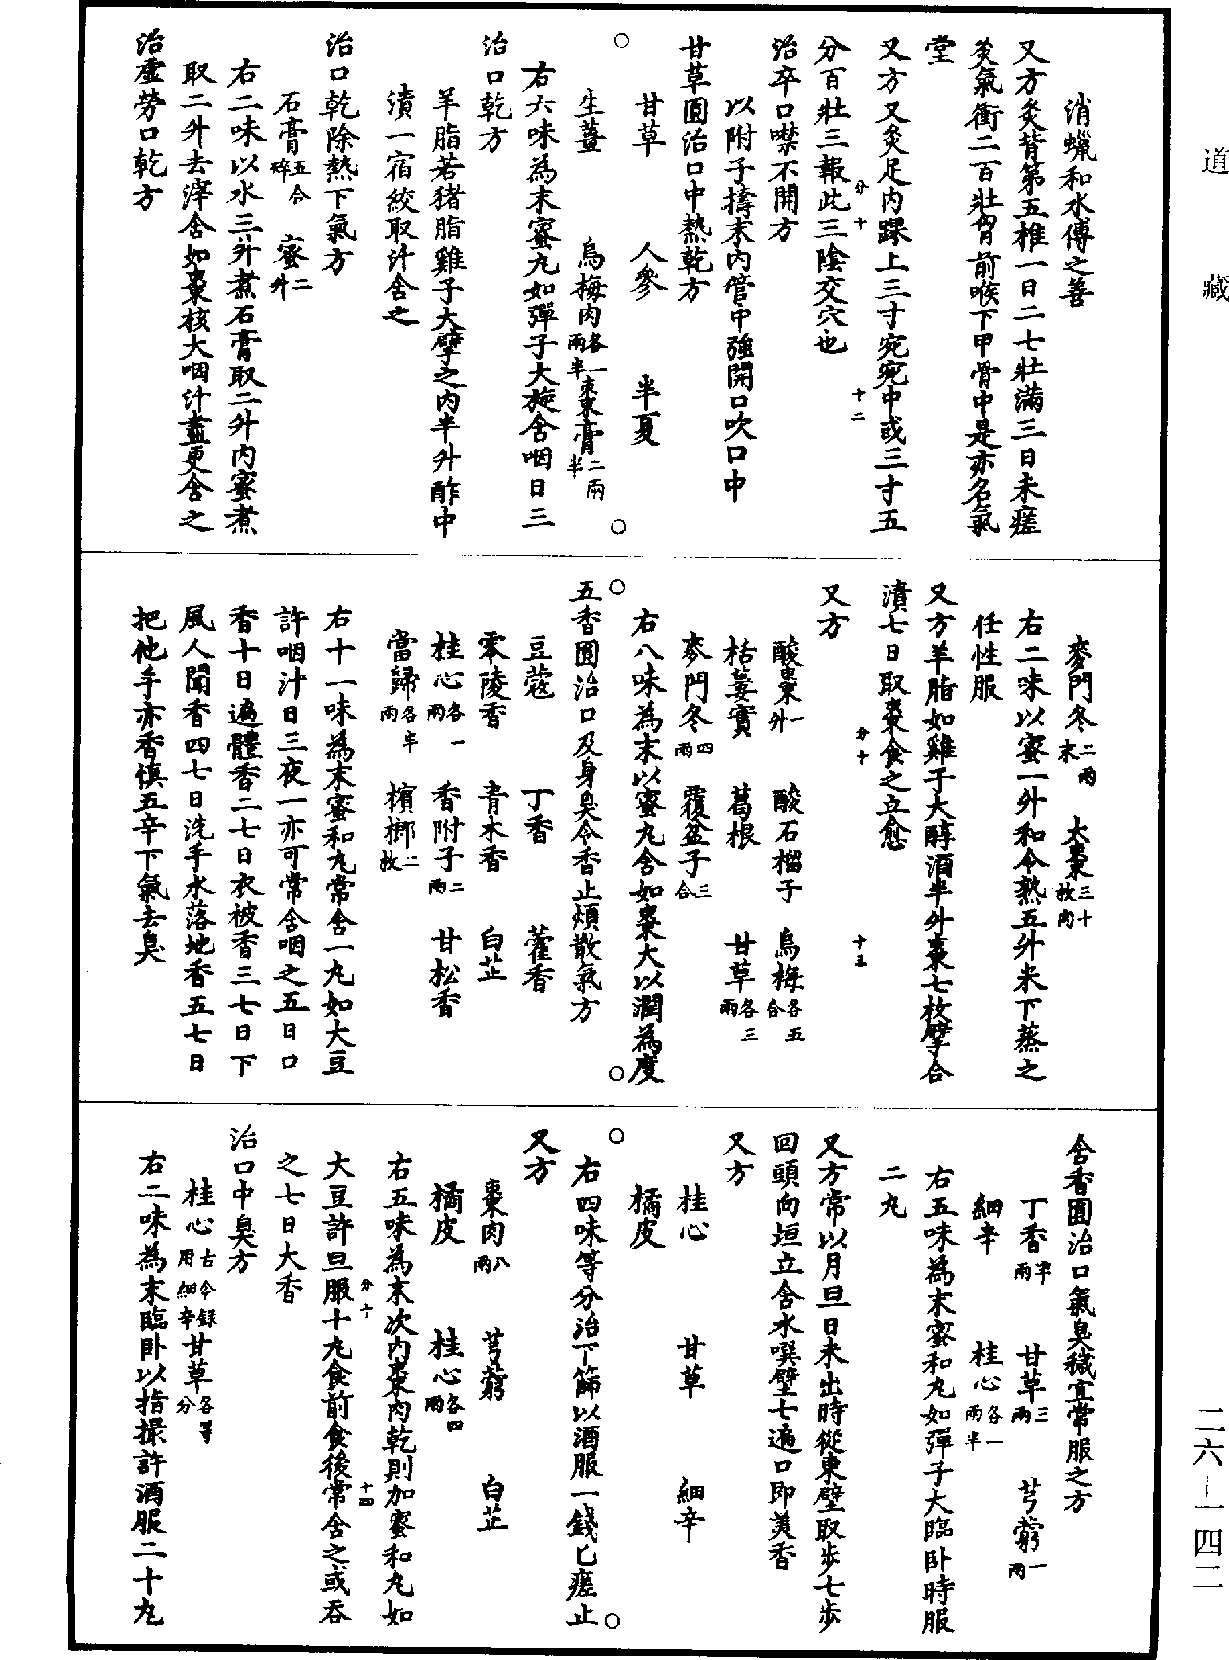 道藏
消蠟和水傅之善
又方灸背第五椎一日二七壯滿三日未瘥
灸氣衝二百壯胷前喉下甲骨中是亦名氣
堂
又方又灸足內踝上三寸宛宛中或三寸五
分百壯三報此三陰交穴也
分十
十二
治卒口噤不開方
以附子擣末內管中強開口吹口中
甘草圓治口中熱乾方
甘草 人參 半夏
生薑 烏梅肉各一兩半 棗膏二兩半
右六味為末蜜丸如彈子大旋含咽日三
治口乾方
羊脂若猪脂雞子大擘之內半升酢中
漬一宿絞取汁含之
治口乾除熱下氣方
石膏五合碎 蜜二升
右二味以水三升煮石膏取二升內蜜煮
取二升去滓含如棗核大咽汁盡更含之
治虛勞口乾方
麥門冬二兩末 大棗三十枚肉
右二味以蜜一升和令熟五升米下蒸之
任性服
又方羊脂如雞子大醇酒半升棗七枚擘合
漬七日取棗食之立愈
分十
十三
又方
酸棗一升 酸石榴子 烏梅各五合
栝蔞實 葛根 甘草各三兩
麥門冬四兩 覆盆子三合
右八味為末以蜜丸含如棗大以潤為度
五香圓治口及身臭令香止煩散氣方
豆蔻 丁香 藿香
零陵香 青木香 白芷
桂心各一兩 香附子二兩 甘松香
當歸各半兩 檳榔二枚
右十一味為末蜜和丸常含一丸如大豆
許咽汁日三夜一亦可常含咽之五日口
香十日遍體香二七日衣被香三七日下
風人聞香四七日洗手水落地香五七日
把他手亦香慎五辛下氣去臭
含香圓治口氣臭穢宜常服之方
丁香半兩 甘草三兩 芎藭一兩
細辛 桂心各一兩半
右五味為末蜜和丸如彈子大臨臥時服
二丸
又方常以月旦日未出時從東壁取步七步
回頭向垣立含水噀壁七遍口即美香
又方
桂心 甘草 細辛
橘皮
右四味等分治下篩以酒服一錢匕瘥止
又方
棗肉八兩 芎藭 白芷
橘皮 桂心各四兩
右五味為末次內棗肉乾則加蜜和丸如
大豆許旦服十丸食前食後常含之或吞
分十
十四
之七日大香
治口中臭方
桂心古今錄用細辛 甘草各等分
右二味為末臨臥以指撮許酒服二十丸
二六—一四二